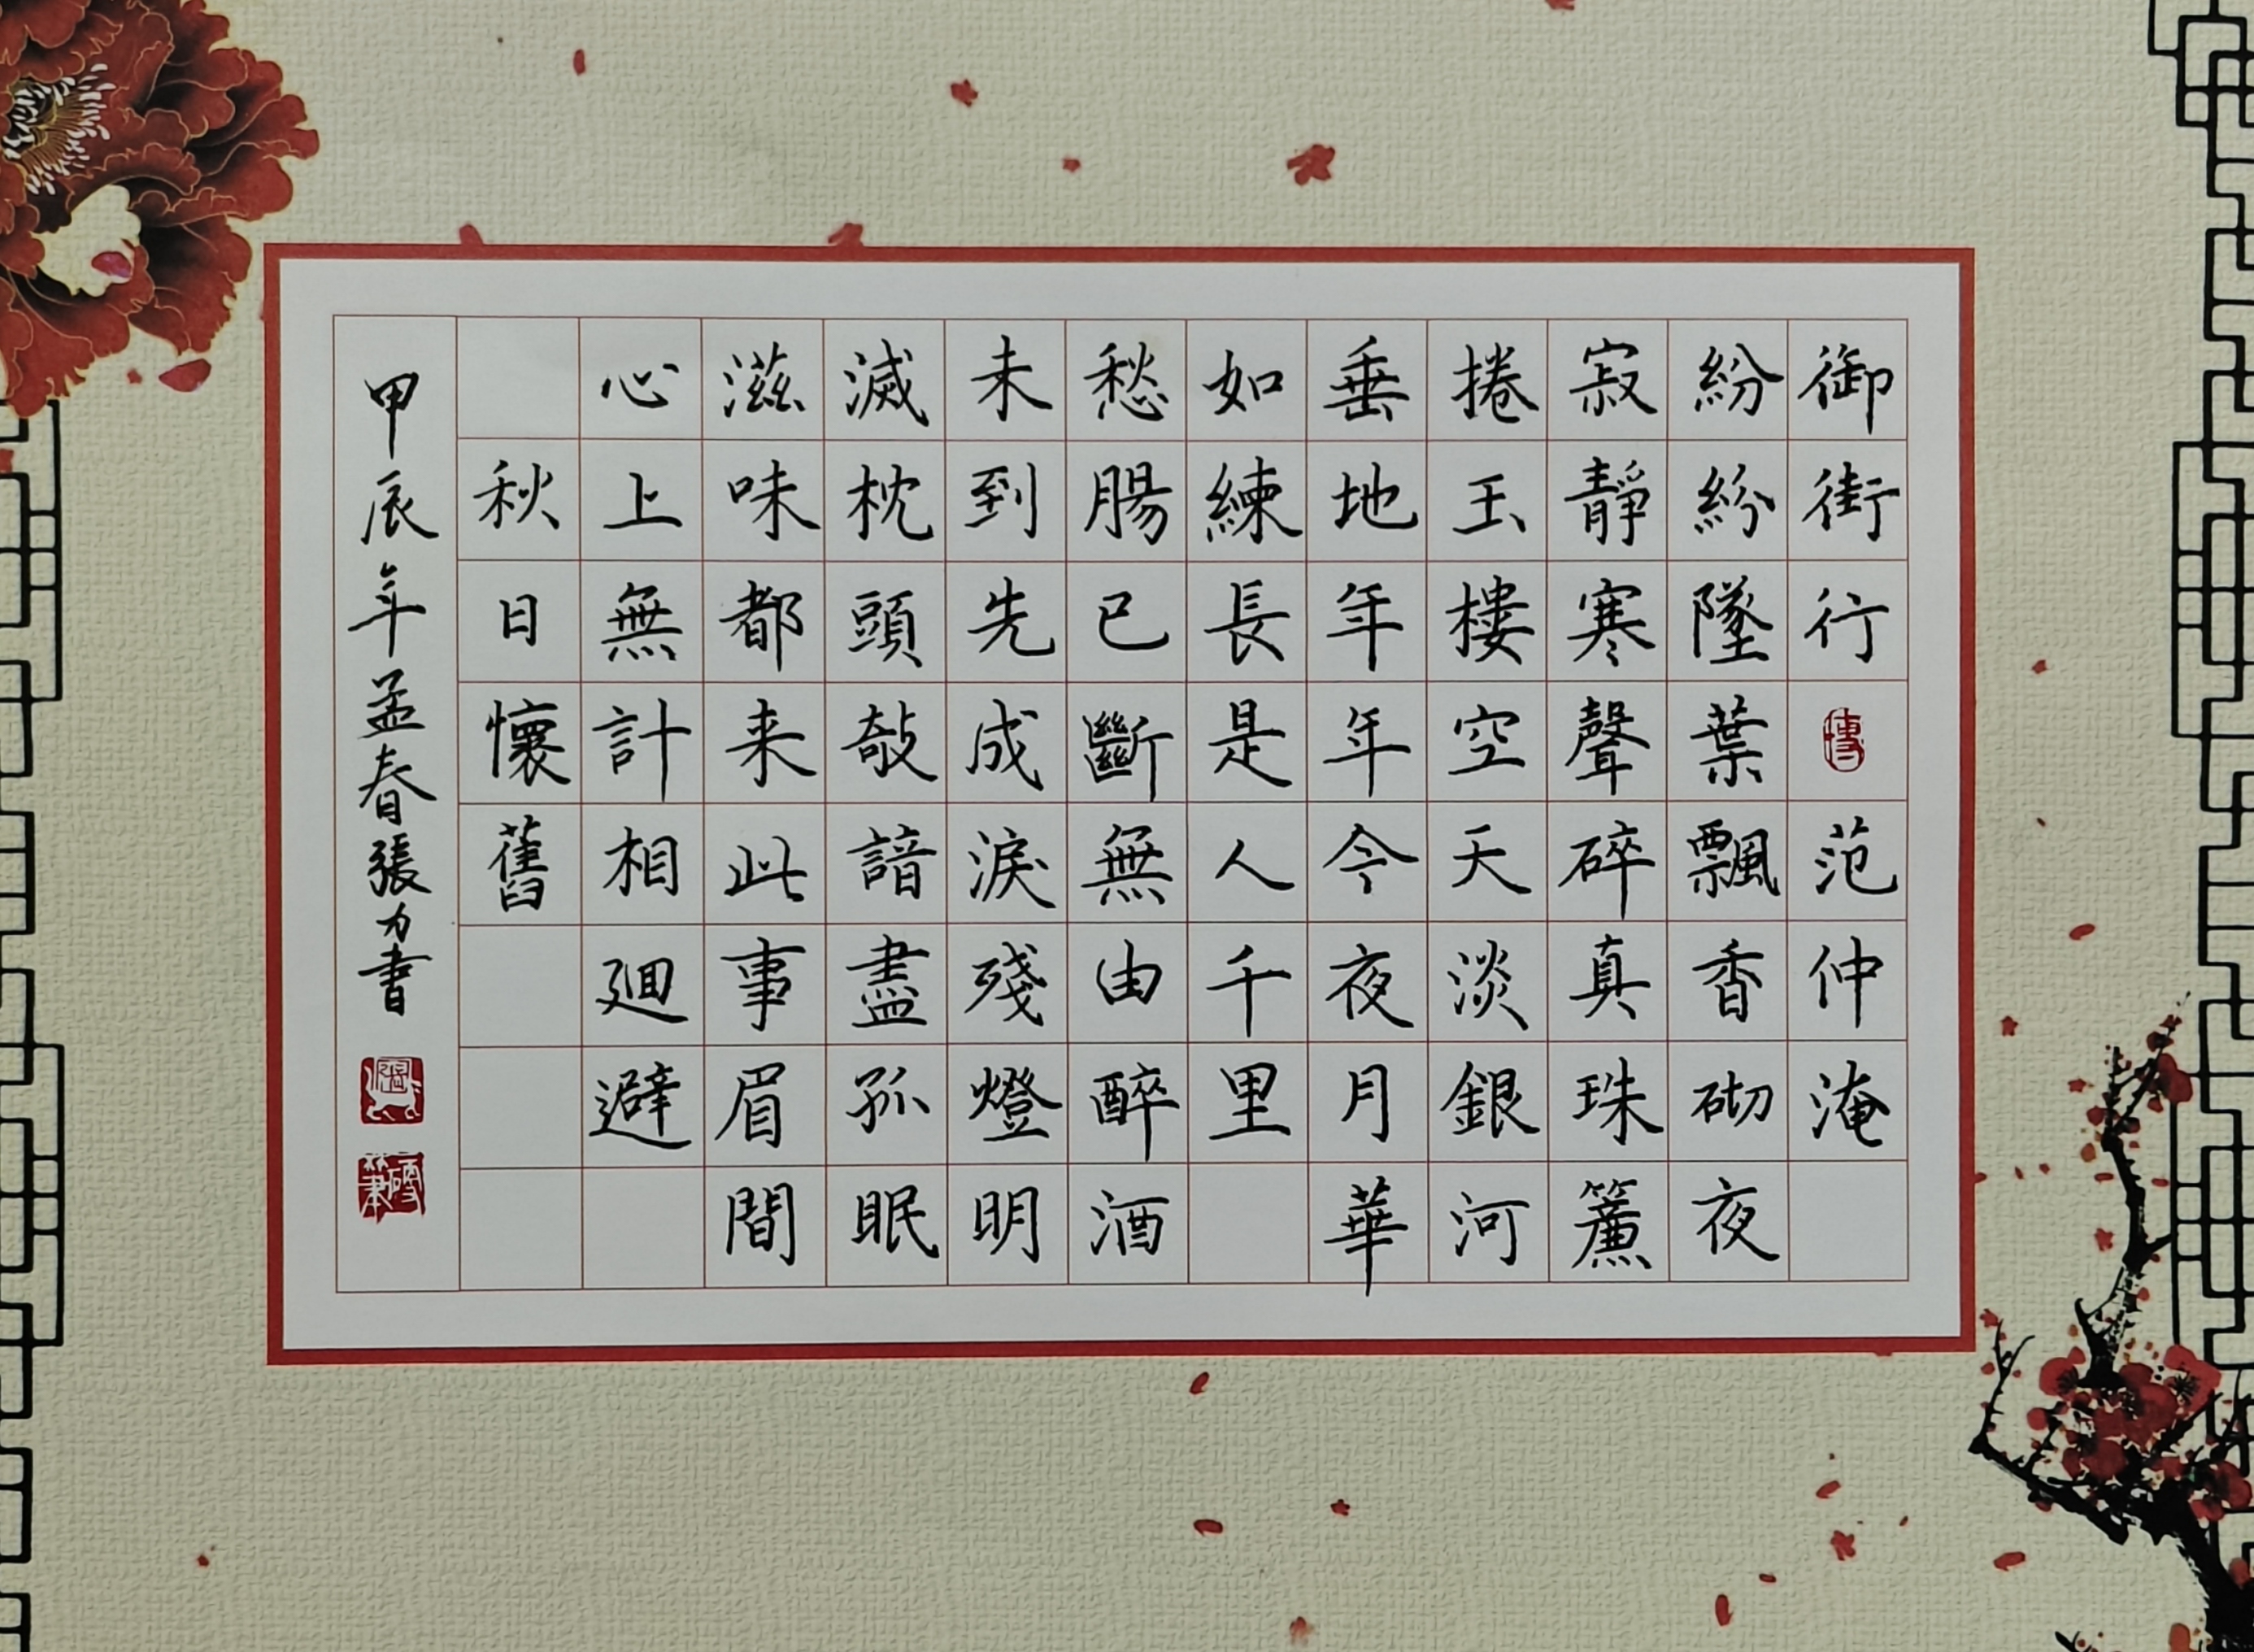 御街行 范仲淹
紛紛墜葉飄香砌夜
寂靜寒聲碎真珠簾
捲玉樓空天淡銀河
垂地年年今夜月華
如練長是人千里
愁腸已斷無由醉酒
未到先成淚殘燈明
滅枕頭敧諳盡孤眠
滋味都来此事眉間
心上無計相廻避
秋日懷舊
甲辰年孟春張力書